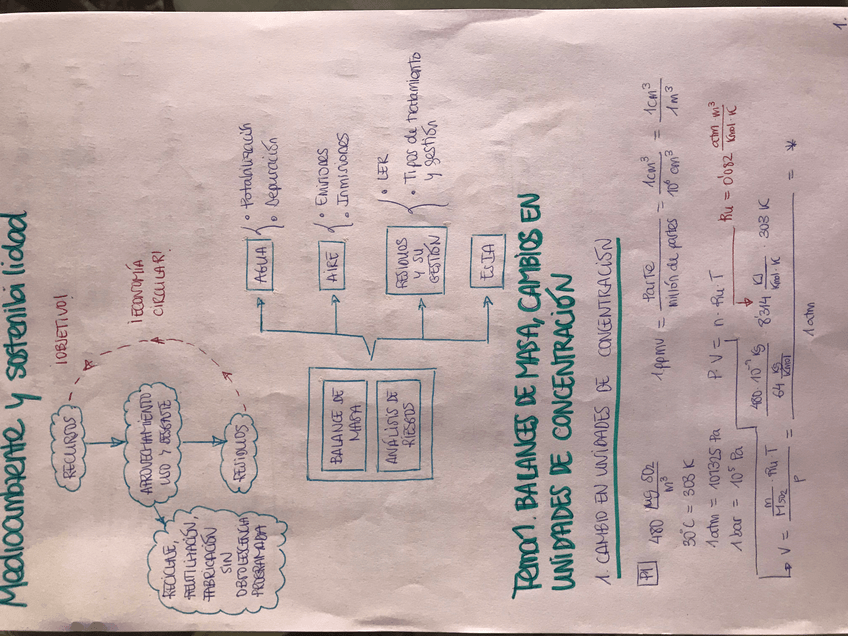 Medioambiente y sostenibilidad
RECURSOS
¡OBJETIVO!
¡ECONOMÍA
CIRCULAR!
APROVECHAMIENTO
USO Y DESGASTE
RESIDUOS
RECICLAJE,
REUTILIZACIÓN,
FABRICACIÓN
SIN
OBSOLESCENCIA
PROGRAMADA
BALANCE DE
MASA
ANÁLISIS DE
RIESGOS
AGUA
• Potabilización
• Depuración
AIRE
• Emisiones
• Inmisiones
RESIDUOS
Y SU
GESTIÓN
• LER
• Tipos de tratamiento
y gestión
ESIA
Tema 1. BALANCES DE MASA, CAMBIOS EN
UNIDADES DE CONCENTRACIÓN
1. CAMBIO EN UNIDADES DE CONCENTRACIÓN
P1 480 μg SO2 / m³ 1ppmv = Parte / millón de partes = 1cm³ / 10⁶ cm³ = 1cm³ / 1m³
30°C = 303 K
1atm = 101325 Pa P·V = n·Ru·T Ru = 0'082 atm m³ / Kmol·K
1bar = 10⁵ Pa
V = m / MSO2 · Ru T / P = 480·10⁻⁹ Kg / 64 Kg/Kmol · 8'314 KJ / Kmol·K · 303 K / 1atm = *
1.